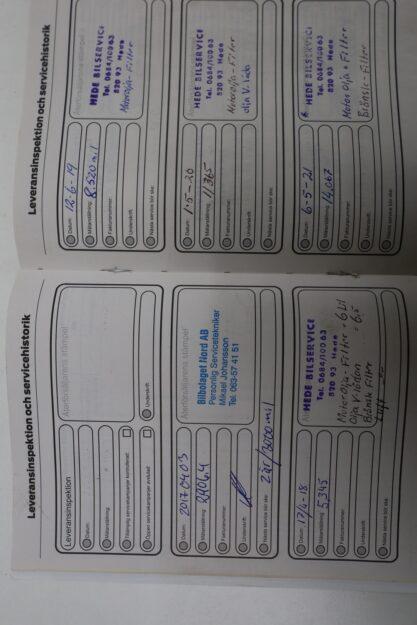 Leveransinspektion och servicehistorik
Leveransinspektion
Datum:
Mätarställning:
Öppen servicekampanjer avslutad:
Underskrift:
Återförsäljarens stämpel
Datum: 2017 04 03
Mätarställning:
Fakturanummer:
Underskrift:
Nästa service bör ske: 2 år/3000 mil
Återförsäljarens stämpel
Bilbolaget Nord AB
Personlig Servicetekniker
Mikael Johansson
Tel. 063-57 41 51
Datum: 17/4-18
Mätarställning: 5,345
Fakturanummer:
Underskrift:
Nästa service bör ske:
HEDE BILSERVICE
Tel. 0684/100 63
820 93 Hede
Motorolja-Filter
Olja V-lådan
Bränsle Filter
Leveransinspektion och servicehistorik
Datum: 12-6-19
Mätarställning: 8,520 mil
Fakturanummer:
Underskrift:
Nästa service bör ske:
HEDE BILSERVICE
Tel. 0684/100 63
820 93 Hede
Motorolja-Filter
Datum: 1-5-20
Mätarställning: 11,365
Fakturanummer:
Underskrift:
Nästa service bör ske:
HEDE BILSERVICE
Tel. 0684/100 63
820 93 Hede
Motorolja-Filter
olja V. låda
Datum: 6-5-21
Mätarställning: 14,067
Fakturanummer:
Underskrift:
Nästa service bör ske:
HEDE BILSERVICE
Tel. 0684/100 63
820 93 Hede
Motor Olja + Filter
Bränsle-Filter